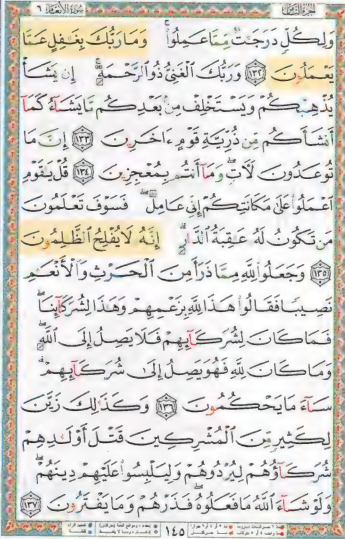 الجزء الثامن سورة الأنعام ٦
وَلِكُلٍّ دَرَجَٰتٌ مِّمَّا عَمِلُوا۟ ۚ وَمَا رَبُّكَ بِغَٰفِلٍ عَمَّا
يَعْمَلُونَ ١٣٢ وَرَبُّكَ ٱلْغَنِىُّ ذُو ٱلرَّحْمَةِ ۚ إِن يَشَأْ
يُذْهِبْكُمْ وَيَسْتَخْلِفْ مِنۢ بَعْدِكُم مَّا يَشَآءُ كَمَآ
أَنشَأَكُم مِّن ذُرِّيَّةِ قَوْمٍ ءَاخَرِينَ ١٣٣ إِنَّ مَا
تُوعَدُونَ لَءَاتٍ ۖ وَمَآ أَنتُم بِمُعْجِزِينَ ١٣٤ قُلْ يَٰقَوْمِ
ٱعْمَلُوا۟ عَلَىٰ مَكَانَتِكُمْ إِنِّى عَامِلٌ ۖ فَسَوْفَ تَعْلَمُونَ
مَن تَكُونُ لَهُۥ عَٰقِبَةُ ٱلدَّارِ ۗ إِنَّهُۥ لَا يُفْلِحُ ٱلظَّٰلِمُونَ
١٣٥ وَجَعَلُوا۟ لِلَّهِ مِمَّا ذَرَأَ مِنَ ٱلْحَرْثِ وَٱلْأَنْعَٰمِ
نَصِيبًا فَقَالُوا۟ هَٰذَا لِلَّهِ بِزَعْمِهِمْ وَهَٰذَا لِشُرَكَآئِنَا ۖ
فَمَا كَانَ لِشُرَكَآئِهِمْ فَلَا يَصِلُ إِلَى ٱللَّهِ ۖ
وَمَا كَانَ لِلَّهِ فَهُوَ يَصِلُ إِلَىٰ شُرَكَآئِهِمْ ۗ
سَآءَ مَا يَحْكُمُونَ ١٣٦ وَكَذَٰلِكَ زَيَّنَ
لِكَثِيرٍ مِّنَ ٱلْمُشْرِكِينَ قَتْلَ أَوْلَٰدِهِمْ
شُرَكَآؤُهُمْ لِيُرْدُوهُمْ وَلِيَلْبِسُوا۟ عَلَيْهِمْ دِينَهُمْ ۖ
وَلَوْ شَآءَ ٱللَّهُ مَا فَعَلُوهُ ۖ فَذَرْهُمْ وَمَا يَفْتَرُونَ ١٣٧
١٤٥